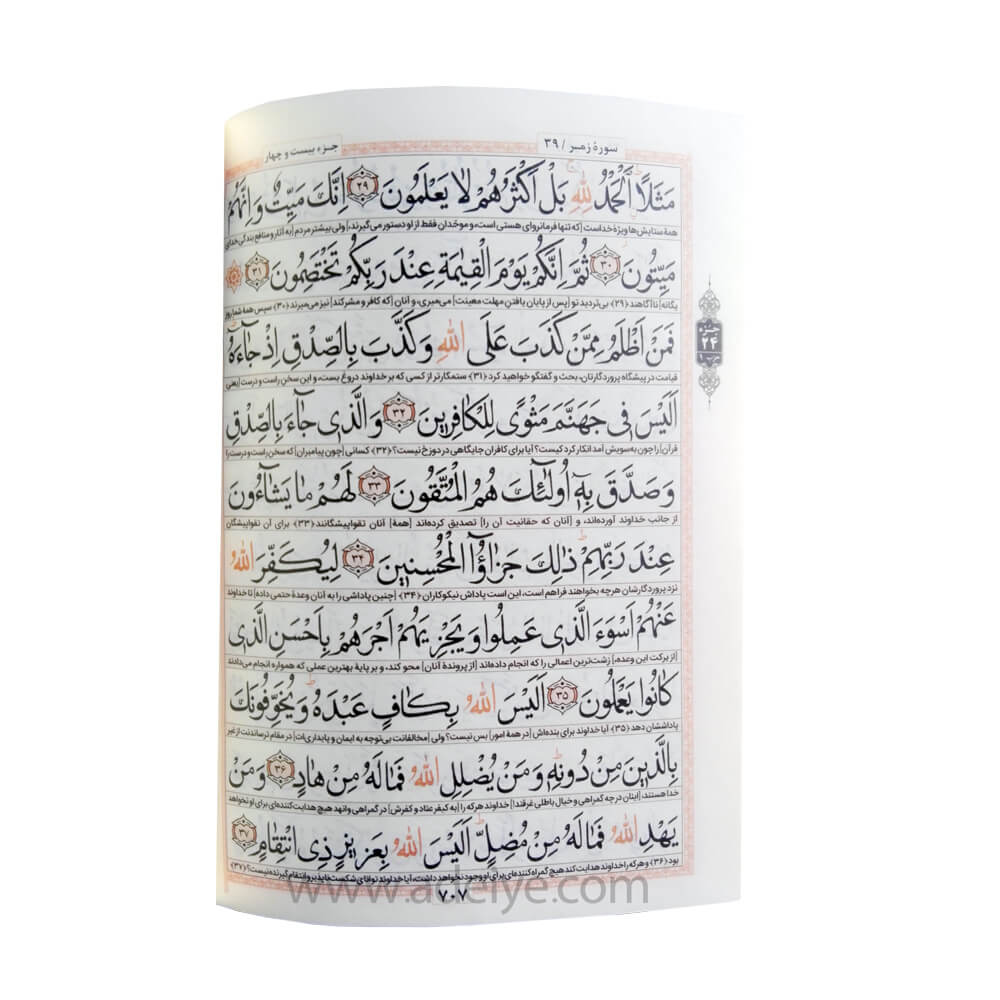 سورهٔ زمر / ۳۹
جزء بیست و چهار
مَثَلًا اَلْحَمْدُ لِلّٰهِ بَلْ اَكْثَرُهُمْ لا يَعْلَمُونَ ۲۹ اِنَّكَ مَيِّتٌ وَ اِنَّهُمْ
همهٔ ستایش‌ها ویژهٔ خداست [که تنها فرمانروای هستی است، و موحّدان فقط از او دستور می‌گیرند،] ولی بیشتر مردم [به آثار و منافع بندگی خدای
مَيِّتُونَ ۳۰ ثُمَّ اِنَّكُمْ يَوْمَ الْقِيٰمَةِ عِنْدَ رَبِّكُمْ تَخْتَصِمُونَ ۳۱
یگانه] ناآگاهند ﴿۲۹﴾ بی‌تردید تو [پس از پایان یافتن مهلت معینت] می‌میری، و آنان [که کافر و مشرکند] نیز می‌میرند ﴿۳۰﴾ سپس همهٔ شما روز
فَمَنْ اَظْلَمُ مِمَّنْ كَذَبَ عَلَى اللّٰهِ وَ كَذَّبَ بِالصِّدْقِ اِذْ جٰاءَهُ
قیامت در پیشگاه پروردگارتان، بحث و گفتگو خواهید کرد ﴿۳۱﴾ ستمگارتر از کسی که بر خداوند دروغ بست، و این سخن راست و درست [یعنی
جزء
۲۴
اَلَيْسَ فى جَهَنَّمَ مَثْوًى لِلْكٰافِرينَ ۳۲ وَ الَّذى جٰاءَ بِالصِّدْقِ
قرآن] را چون به‌سویش آمد انکار کرد کیست؟ آیا برای کافران جایگاهی در دوزخ نیست؟ ﴿۳۲﴾ کسانی [چون پیامبران] که سخن راست و درست را
وَ صَدَّقَ بِهٖ اُولٰئِكَ هُمُ الْمُتَّقُونَ ۳۳ لَهُمْ مٰا يَشٰاءُونَ
از جانب خداوند آورده‌اند، و [آنان که حقانیت آن را] تصدیق کرده‌اند [همهٔ] آنان تقواپیشگانند ﴿۳۳﴾ برای آن تقواپیشگان
عِنْدَ رَبِّهِمْ ذٰلِكَ جَزٰاؤُا الْمُحْسِنينَ ۳۴ لِيُكَفِّرَ اللّٰهُ
نزد پروردگارشان هرچه بخواهند فراهم است، این است پاداش نیکوکاران ﴿۳۴﴾ [چنین پاداشی را به آنان وعدهٔ حتمی داده] تا خداوند
عَنْهُمْ اَسْوَءَ الَّذى عَمِلُوا وَ يَجْزِيَهُمْ اَجْرَهُمْ بِاَحْسَنِ الَّذى
[از برکت این وعده،] زشت‌ترین اعمالی را که انجام داده‌اند [از پروندهٔ آنان] محو کند، و بر پایهٔ بهترین عملی که همواره انجام می‌دادند
كٰانُوا يَعْمَلُونَ ۳۵ اَلَيْسَ اللّٰهُ بِكٰافٍ عَبْدَهُ وَ يُخَوِّفُونَكَ
پاداششان دهد ﴿۳۵﴾ آیا خداوند برای بنده‌اش [در همهٔ امور] بس نیست؟ ولی [مخالفانت بی‌توجه به ایمان و پایداری‌ات] در مقام ترساندنت از غیر
بِالَّذينَ مِنْ دُونِهٖ وَ مَنْ يُضْلِلِ اللّٰهُ فَمٰا لَهُ مِنْ هٰادٍ ۳۶ وَ مَنْ
خدا هستند، [اینان در چه گمراهی و خیال باطلی غرقند!] خداوند هرکه را [به کیفر عناد و کفرش] در گمراهی وانهد هیچ هدایت‌کننده‌ای برای او نخواهد
يَهْدِ اللّٰهُ فَمٰا لَهُ مِنْ مُضِلٍّ اَلَيْسَ اللّٰهُ بِعَزيزٍ ذِى انْتِقٰامٍ ۳۷
بود ﴿۳۶﴾ و هرکه را خداوند هدایت کند هیچ گمراه‌کننده‌ای برای او وجود نخواهد داشت، آیا خداوند توانای شکست‌ناپذیر و انتقام‌گیرنده نیست؟ ﴿۳۷﴾
www.adelye.com
۷۰۷